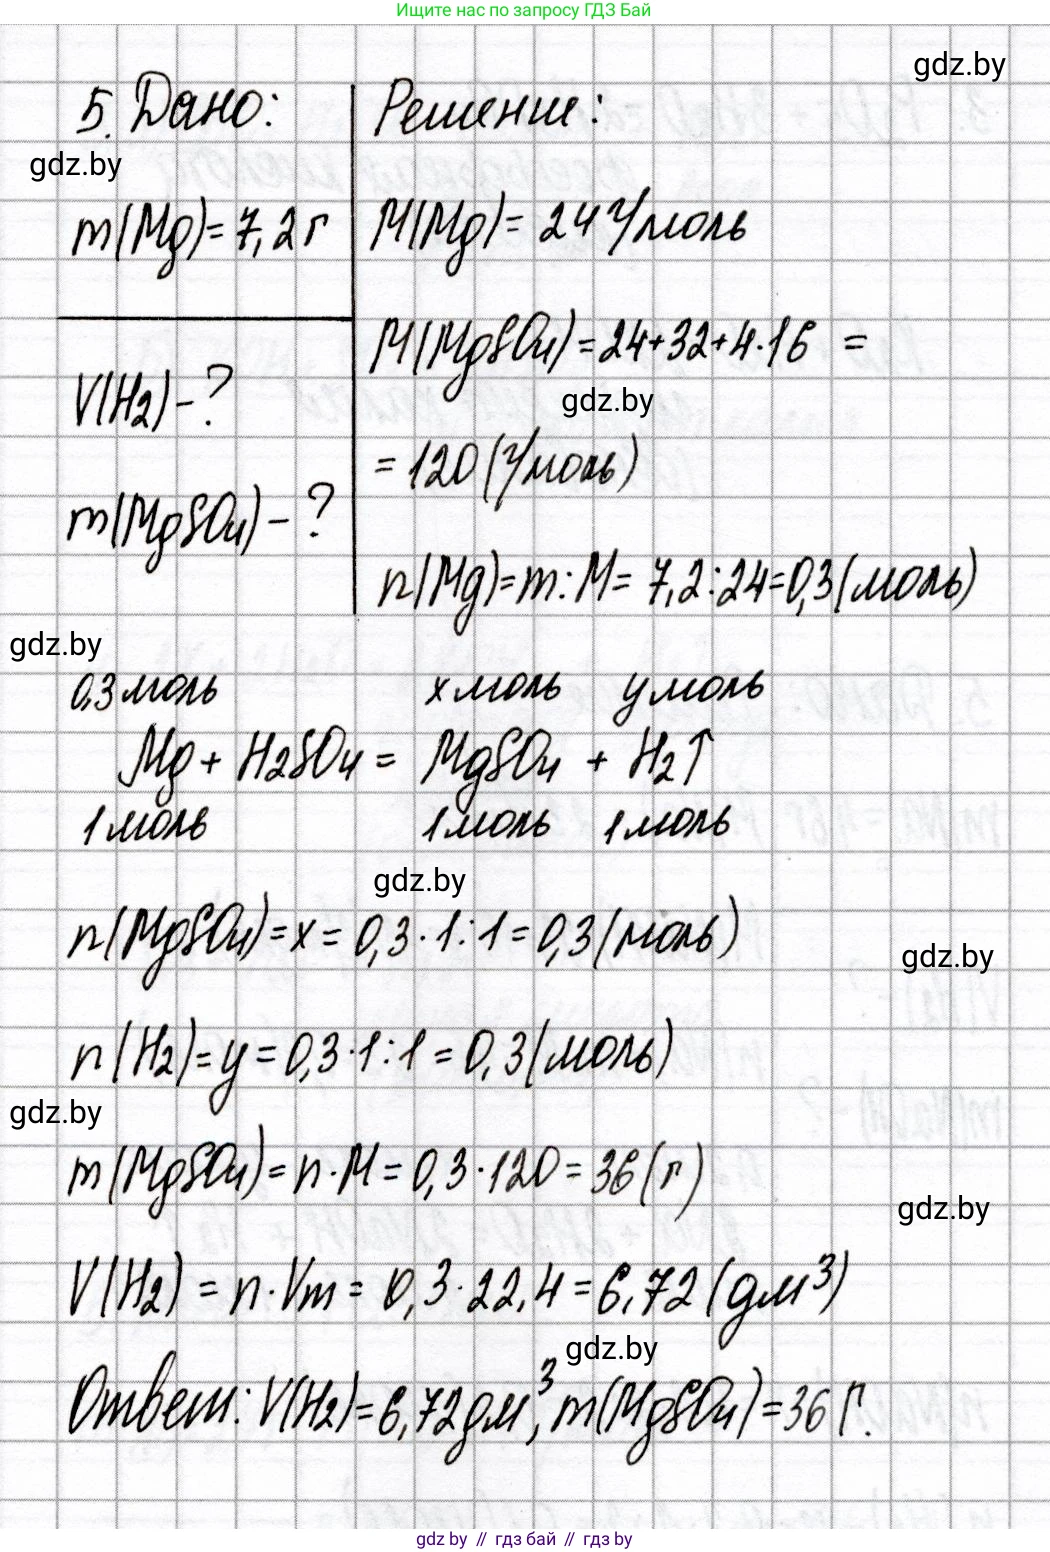 Ищите нас по запросу ГДЗ Бай
gdz.by
5. Дано:
Решение:
gdz.by
m(Mg)= 7,2 г
M(Mg)= 24 г/моль
M(MgSO4)=24+32+4·16 =
V(H2)-?
gdz.by
= 120 (г/моль)
m(MgSO4)-?
n(Mg)=m:M= 7,2:24=0,3(моль)
gdz.by
0,3 моль x моль y моль
Mg + H2SO4 = MgSO4 + H2↑
1 моль 1 моль 1 моль
gdz.by
n(MgSO4)=x= 0,3·1:1=0,3(моль)
gdz.by
n(H2)=y=0,3·1:1=0,3(моль)
gdz.by
m(MgSO4)=n·M=0,3·120=36(г)
gdz.by
V(H2)=n·Vm=0,3·22,4=6,72(дм³)
gdz.by
Ответ: V(H2)=6,72дм³, m(MgSO4)=36 г.
gdz.by // гдз бай // gdz.by